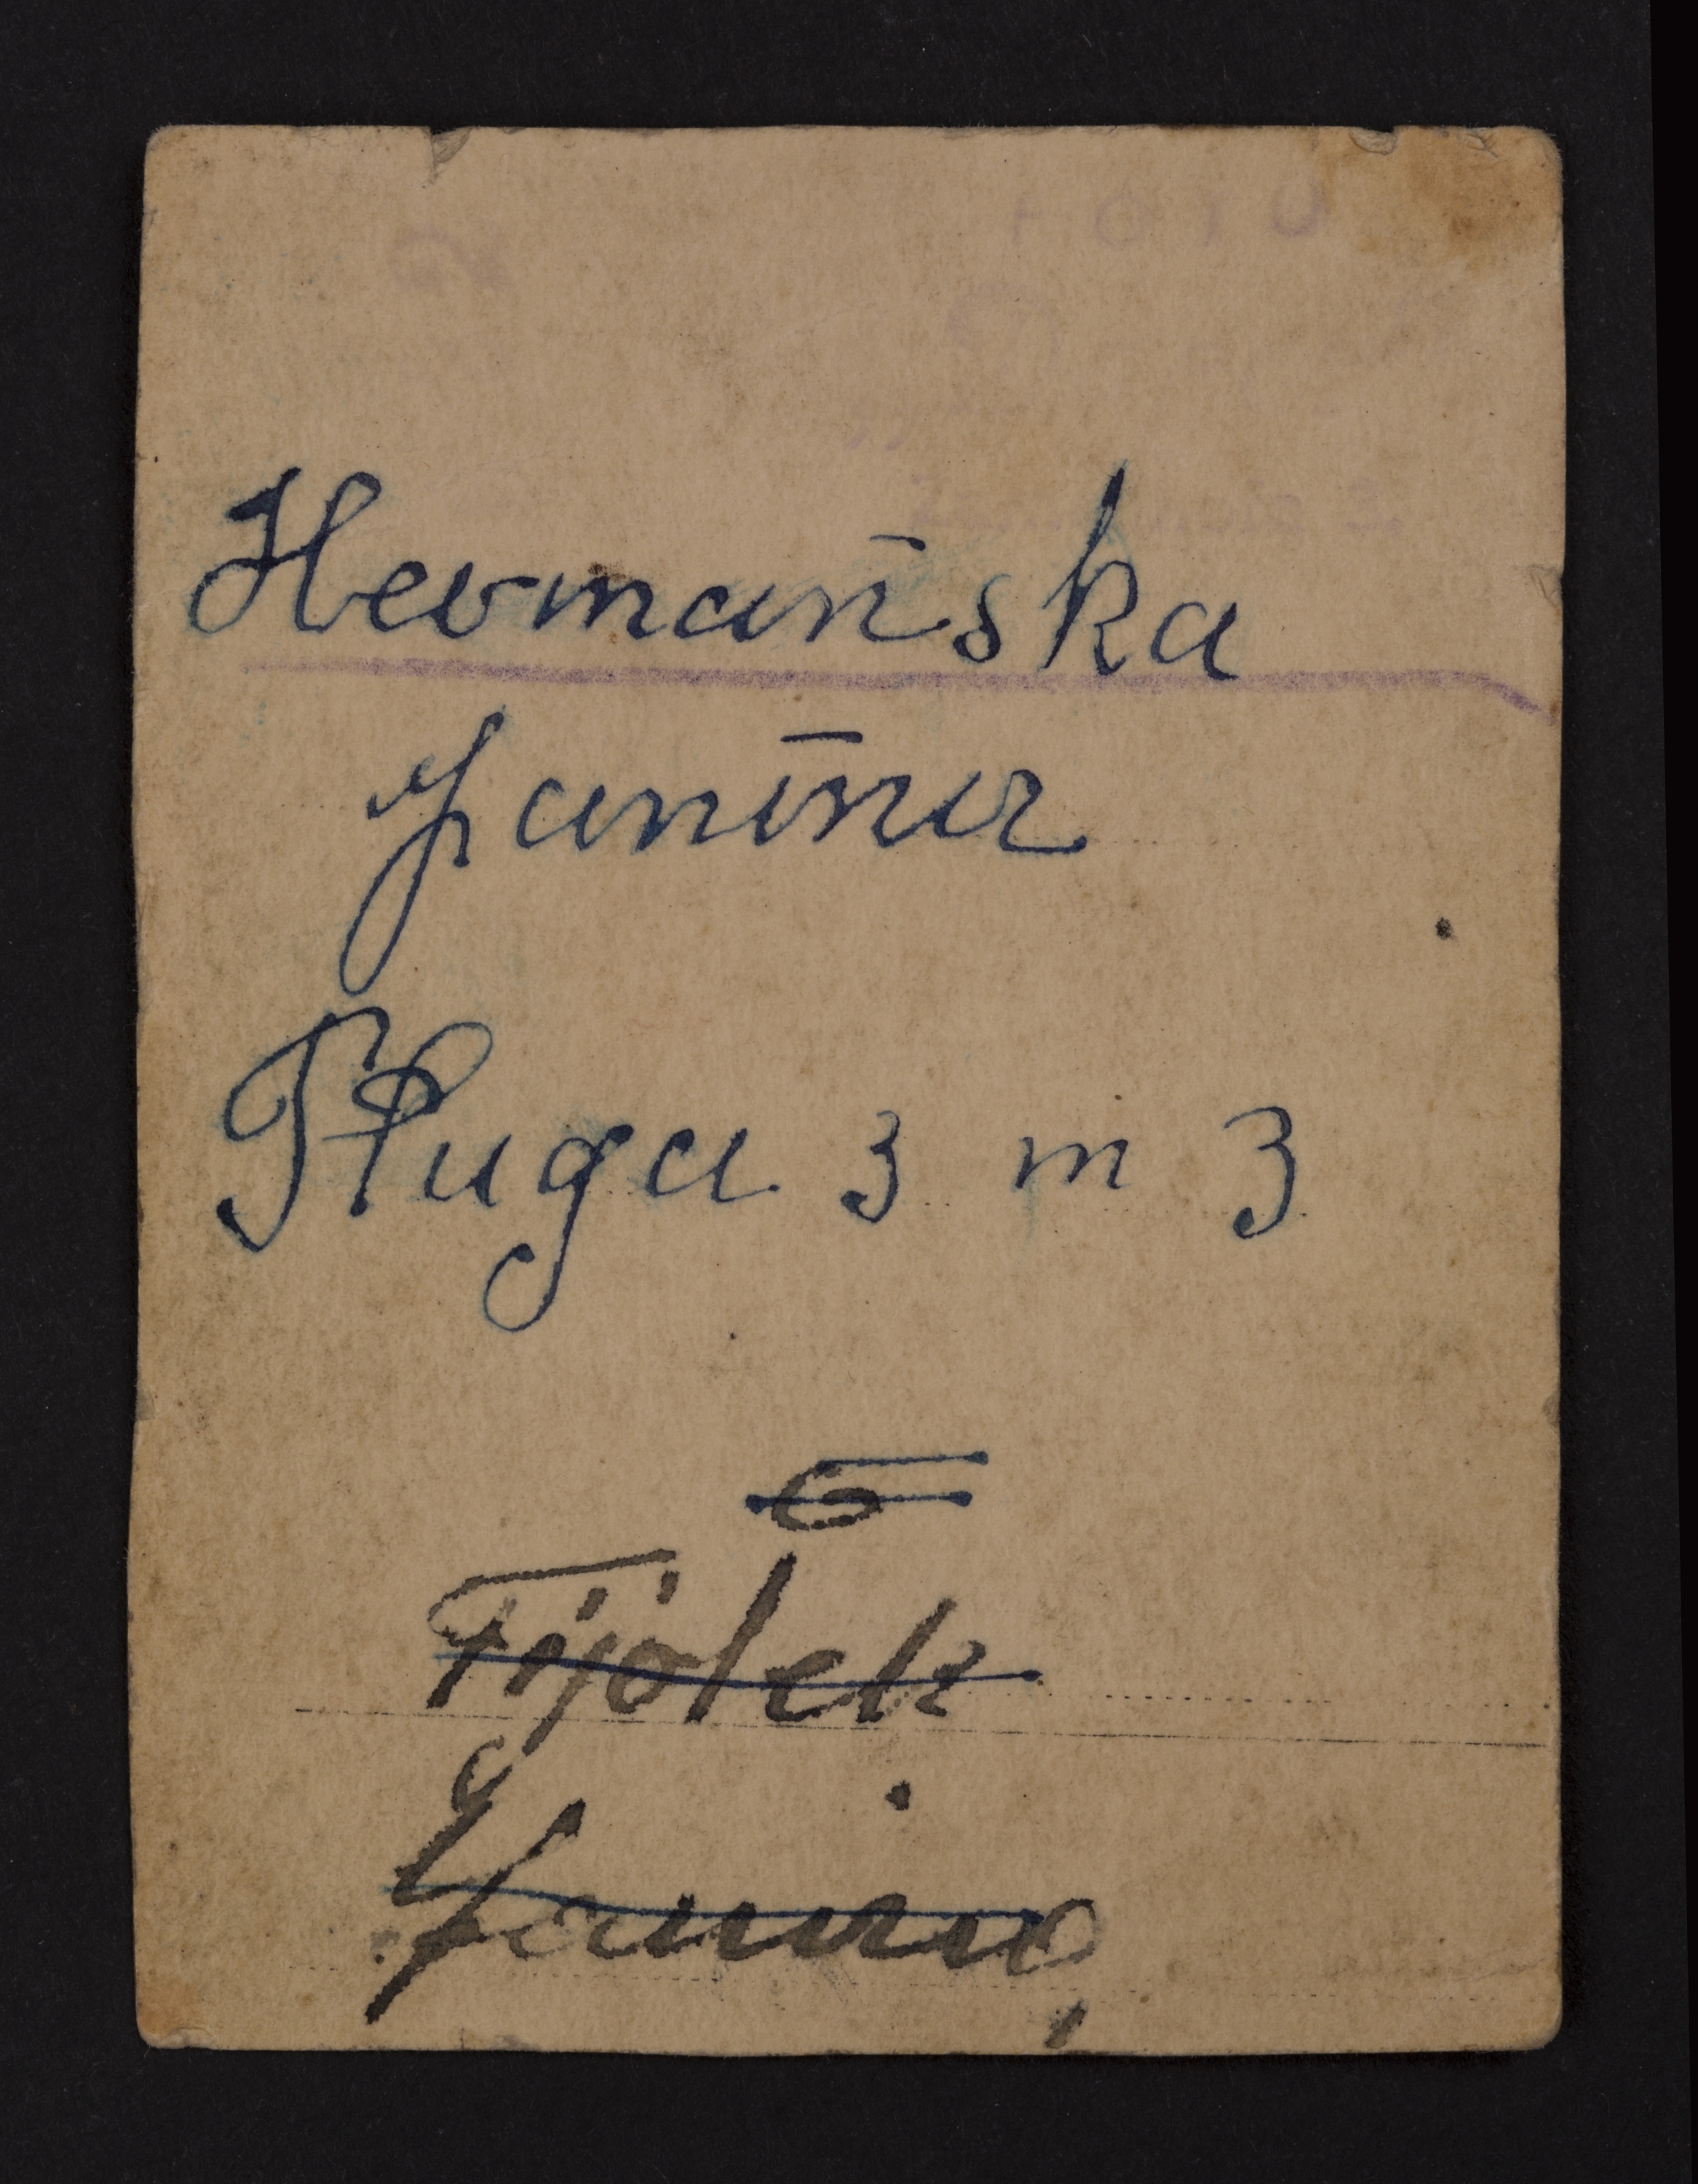 Hermańska
Janina
Długa 3 m 3
6
Fijołek
Janina